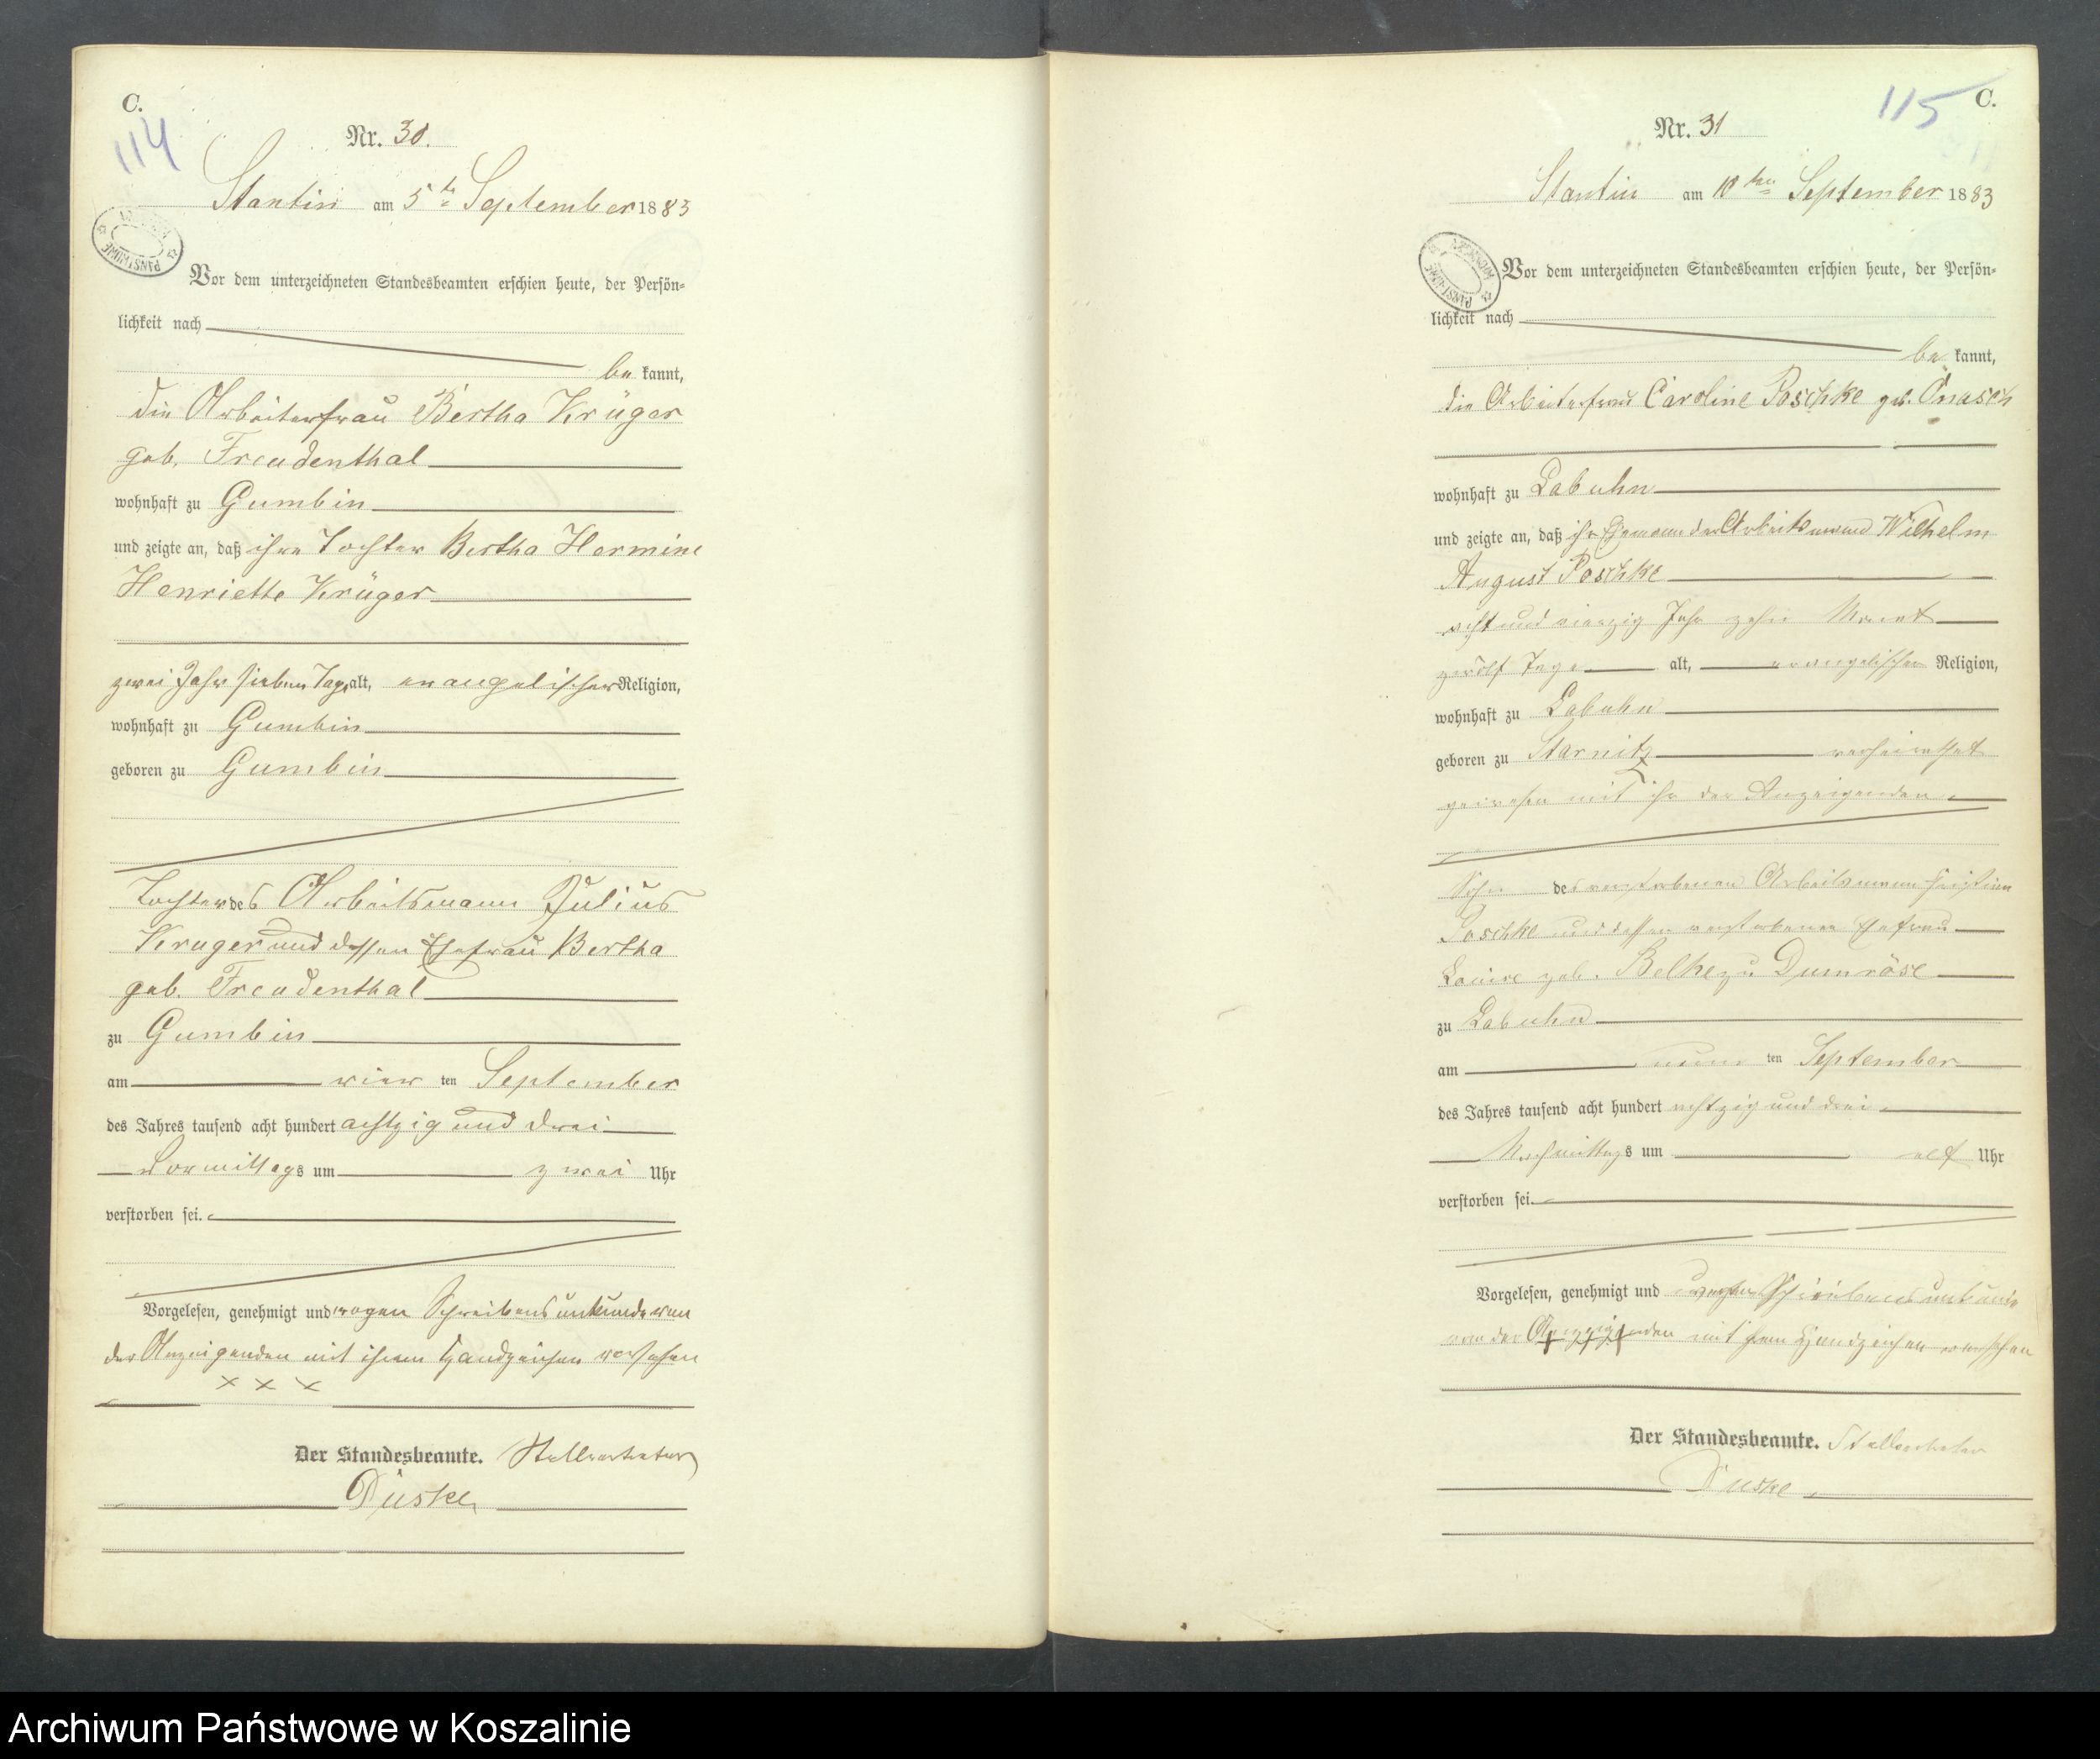 C.
114
Nr. 30.
Stantin am 5te September 1883
Vor dem unterzeichneten Standesbeamten erschien heute, der Persön-
lichkeit nach
be kannt,
die Arbeiterfrau Bertha Krüger
geb. Freudenthal
wohnhaft zu Gumbin
und zeigte an, daß ihre Tochter Bertha Hermine
Henriette Krüger
zwei Jahr sieben Tage alt, evangelischer Religion,
wohnhaft zu Gumbin
geboren zu Gumbin
Tochter des Arbeitsmann Julius
Krüger und dessen Ehefrau Bertha
geb. Freudenthal
zu Gumbin
am vier ten September
des Jahres tausend acht hundert achtzig und drei
Vormittags um zwei Uhr
verstorben sei.
Vorgelesen, genehmigt und wegen Schreibensunkunde von
der Anzeigenden mit ihrem Handzeichen versehen
x x x
Der Standesbeamte. Stellvertreter
Düske
C.
115
Nr. 31
Stantin am 10ten September 1883
PAŃSTWOWE
Vor dem unterzeichneten Standesbeamten erschien heute, der Persön-
lichkeit nach
be kannt,
die Arbeiterfrau Caroline Poschke geb. Onasch
wohnhaft zu Labuhn
und zeigte an, daß ihr Ehemann der Arbeitsmann Wilhelm
August Poschke
acht und vierzig Jahr zehn Monat
zwölf Tage alt, evangelischer Religion,
wohnhaft zu Labuhn
geboren zu Starnitz verheirathet
gewesen mit ihr der Anzeigenden
Sohn des verstorbenen Arbeitsmann
Poschke und dessen verstorbenen Ehefrau
Louise geb. Belke zu Dumröse
zu Labuhn
am neun ten September
des Jahres tausend acht hundert achtzig und drei
Nachmittags um elf Uhr
verstorben sei.
Vorgelesen, genehmigt und wegen Schreibensunkunde
von der Anzeigenden mit ihrem Handzeichen versehen
+ + + +
Der Standesbeamte. Stellvertreter
Düske
Archiwum Państwowe w Koszalinie